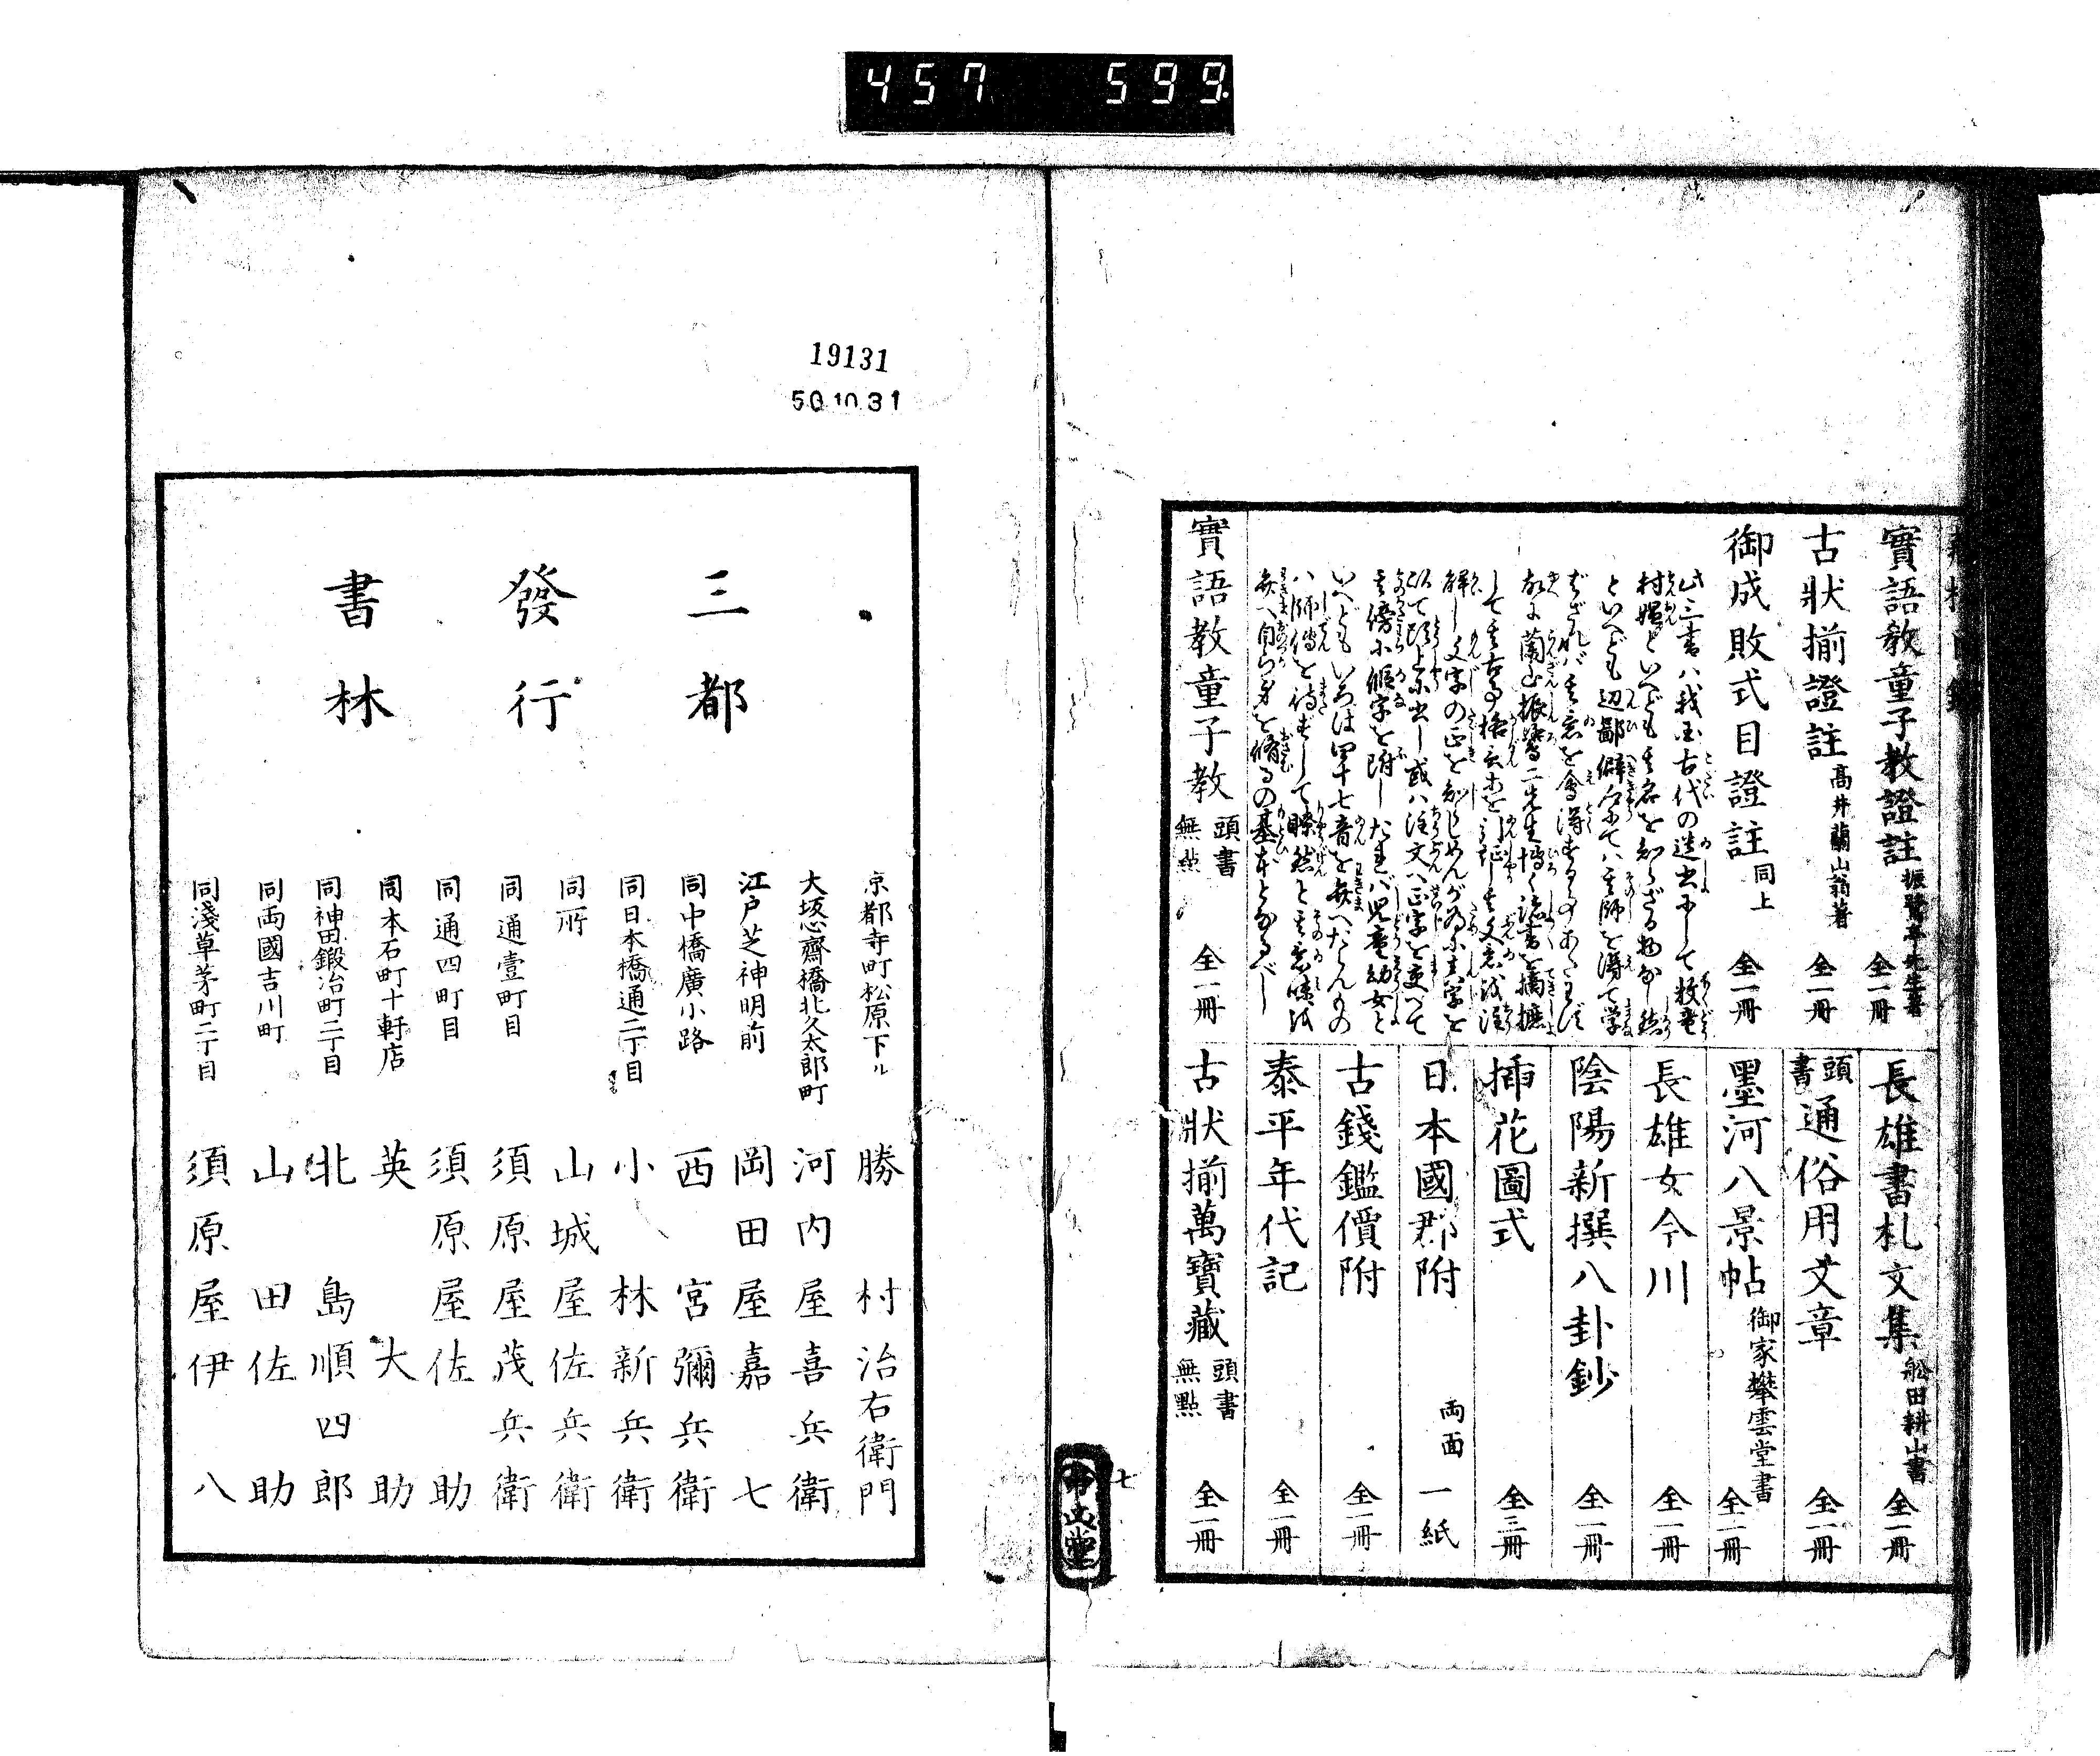 457 599
實語教童子教證註 振鷺亭先生著 全一冊
古狀揃證註 高井蘭山翁著 全一冊
御成敗式目證註 同上 全一冊
此三書ハ我国古代の
村嫗といへども其名を知らざる物なし
といへども辺鄙僻
ざれバ其意を會得
故に蘭山振鷺二先生博く諸書を摘摭
して其古事格言を
解し文字の正を知らしめんが為に
以て頭上に出し或ハ注文ハ正字を
其傍に假字を附したれバ児童幼女と
いへどもいろは四十七音を
ハ師傳を待ずして瞭然と其意味
自ら身を脩るの基本となるべし
實語教童子教 頭書 無點 全一冊
長雄書札文集 舩田耕山書 全一冊
頭書 通俗用文章 全一冊
墨河八景帖 御家攀雲堂書 全一冊
長雄女今川 全一冊
陰陽新撰八卦鈔 全一冊
挿花圖式 全三冊
日本國郡附 両面 一紙
古錢鑑價附 全一冊
泰平年代記 全一冊
古狀揃萬寶藏 頭書 無點 全一冊
七
19131
50.10.31
三都
發行
書林
京都寺町松原下ル 勝村治右衛門
大坂心齋橋北久太郎町 河内屋喜兵衛
江戸芝神明前 岡田屋嘉七
同中橋廣小路 西宮彌兵衛
同日本橋通二丁目 小林新兵衛
同所 山城屋佐兵衛
同通壹町目 須原屋茂兵衛
同通四町目 須原屋佐助
同本石町十軒店 英大助
同神田鍛冶町二丁目 北島順四郎
同両國吉川町 山田佐助
同淺草茅町二丁目 須原屋伊八